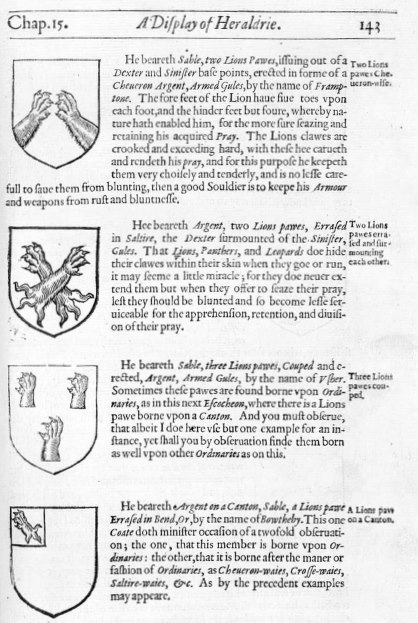 Chap.15. A Display of Heraldrie. 143
He beareth Sable, two Lions Pawes, issuing out of a
Dexter and Sinister base points, erected in forme of a
Cheueron Argent, Armed Gules, by the name of Framp-
tone. The fore feet of the Lion haue fiue toes vpon
each foot, and the hinder feet but foure, whereby na-
ture hath enabled him, for the more sure seazing and
retaining his acquired Pray. The Lions clawes are
crooked and exceeding hard, with these hee carueth
and rendeth his pray, and for this purpose he keepeth
them very choisely and tenderly, and is no lesse care-
full to saue them from blunting, then a good Souldier is to keepe his Armour
and weapons from rust and bluntnesse.
Two Lions
pawes Che-
ueron-wise.
Hee beareth Argent, two Lions pawes, Errased
in Saltire, the Dexter surmounted of the Sinister,
Gules. That Lions, Panthers, and Leopards doe hide
their clawes within their skin when they goe or run,
it may seeme a little miracle; for they doe neuer ex-
tend them but when they offer to seaze their pray,
lest they should be blunted and so become lesse ser-
uiceable for the apprehension, retention, and diuisi-
on of their pray.
Two Lions
pawes erra-
sed and sur-
mounting
each other.
He beareth Sable, three Lions pawes, Couped and e-
rected, Argent, Armed Gules, by the name of Vsher.
Sometimes these pawes are found borne vpon Ordi-
naries, as in this next Escocheon, where there is a Lions
pawe borne vpon a Canton. And you must obserue,
that albeit I doe here vse but one example for an in-
stance, yet shall you by obseruation finde them born
as well vpon other Ordinaries as on this.
Three Lions
pawes cou-
ped.
He beareth Argent on a Canton, Sable, a Lions pawe
Errased in Bend, Or, by the name of Bowtheby. This one
Coate doth minister occasion of a twofold obseruati-
on; the one, that this member is borne vpon Or-
dinaries: the other, that it is borne after the maner or
fashion of Ordinaries, as Cheueron-waies, Crosse-waies,
Saltire-waies, &c. As by the precedent examples
may appeare.
A Lions pawe
on a Canton.